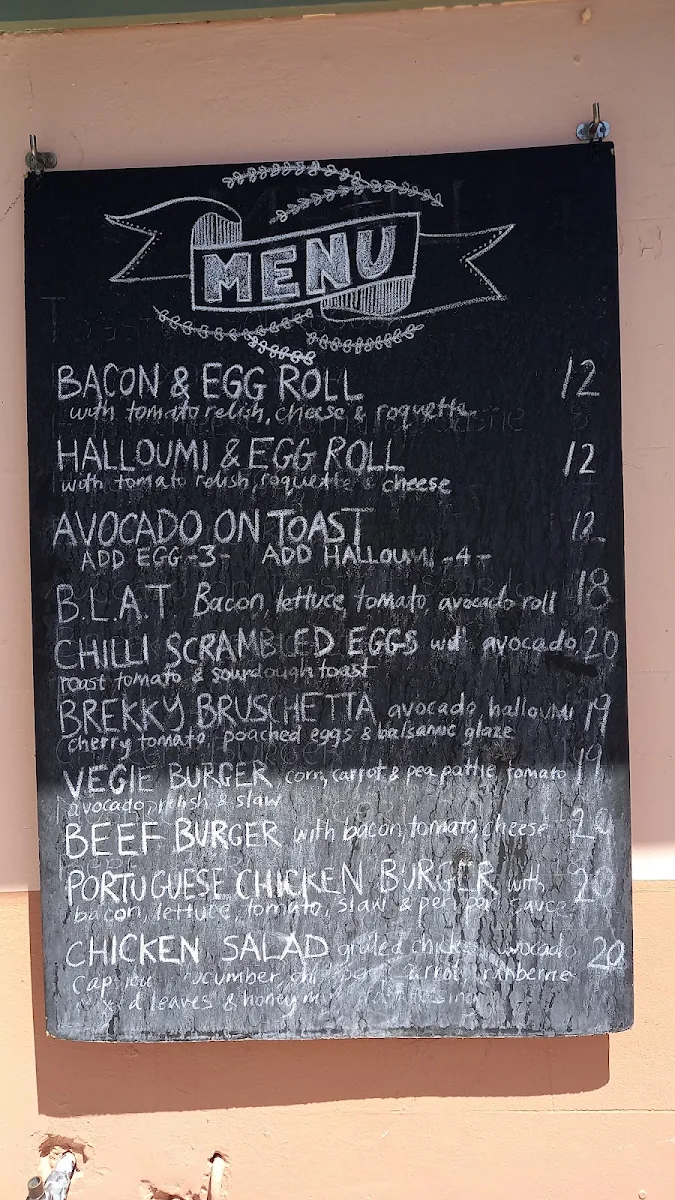 MENU
BACON & EGG ROLL 12
with tomato relish, cheese & roquette
HALLOUMI & EGG ROLL 12
with tomato relish, roquette & cheese
AVOCADO ON TOAST 12
ADD EGG -3- ADD HALLOUMI -4-
B.L.A.T Bacon, lettuce, tomato, avocado roll 18
CHILLI SCRAMBLED EGGS wd' avocado, 20
roast tomato & sourdough toast
BREKKY BRUSCHETTA avocado, halloumi 19
cherry tomato, poached eggs & balsamic glaze
VEGIE BURGER corn, carrot & pea pattie, tomato 19
avocado, relish & slaw
BEEF BURGER with bacon, tomato, cheese 20
PORTUGUESE CHICKEN BURGER with 20
bacon, lettuce, tomato, slaw & peri peri sauce
CHICKEN SALAD grilled chicken, avocado 20
cucumber carrot
leaves & honey